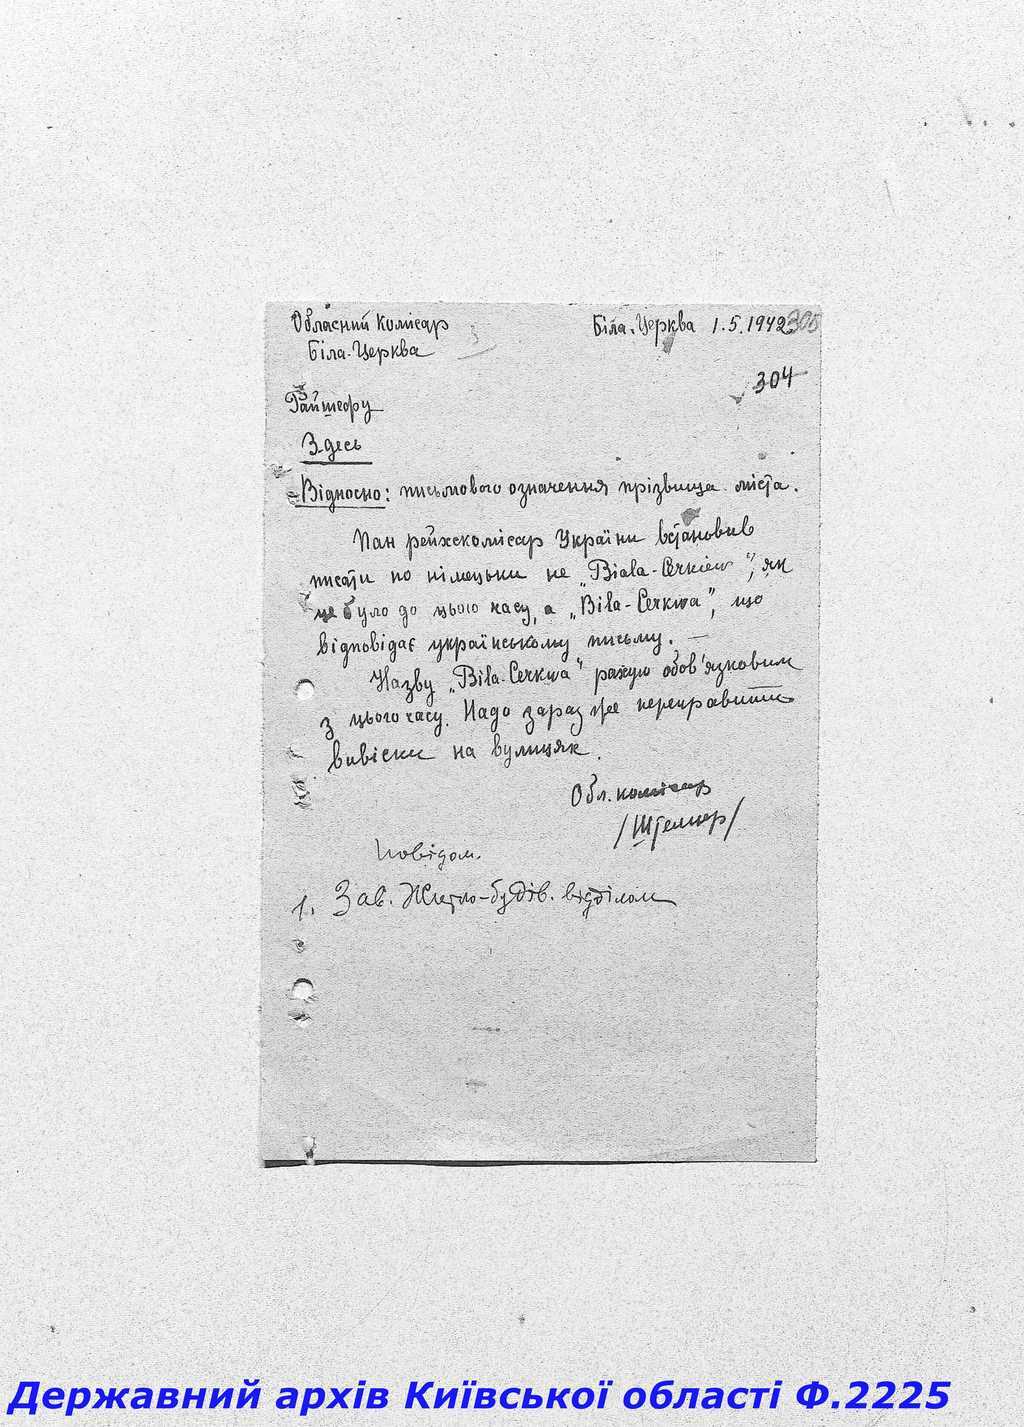 Обласний Комісар Біла-Церква 1.5.1942 305
Біла-Церква
304
Гайшефу
Здесь
Відносно: письмового означення прізвища міста.
Пан рейхскомісар України встановив
писати по німецьки не „Biala-Cerkiew", як
це було до цього часу, а „Bila-Cerkwa", що
відповідає українському письму. —
Назву „Bila-Cerkwa" рахую обов'язковим
з цього часу. Надо зараз же переправити
вивіски на вулицях.
Обл. комісар
/Штельцер/
Повідом.
1. Зав. Житло-будів. відділом
Державний архів Київської області Ф.2225